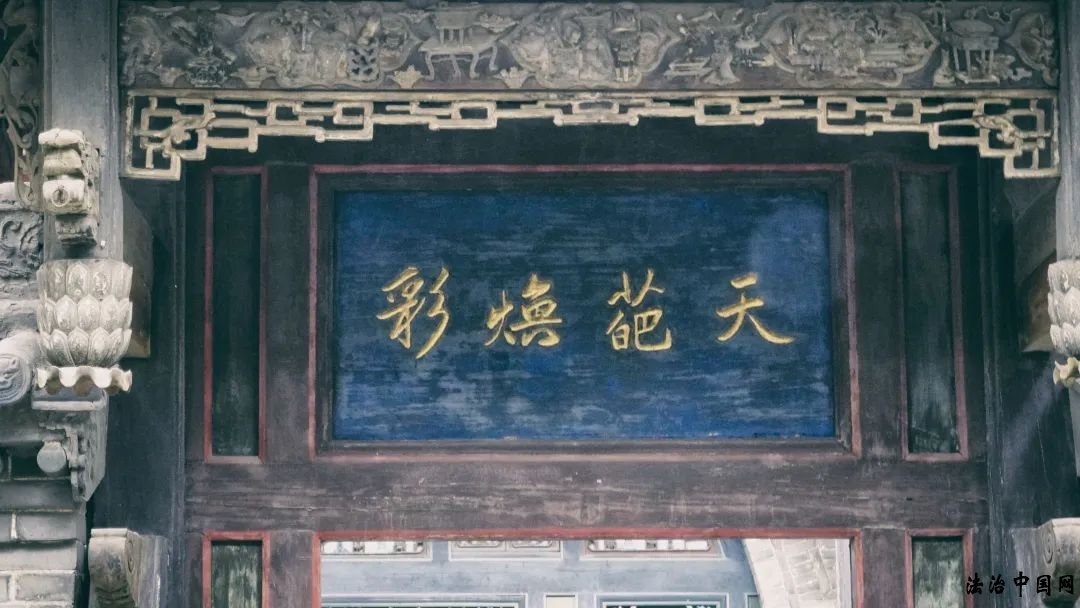 天葩煥彩
法治中国网